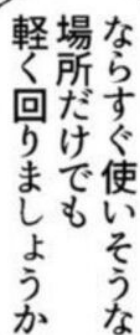 ならすぐ使いそうな
場所だけでも
軽く回りましょうか